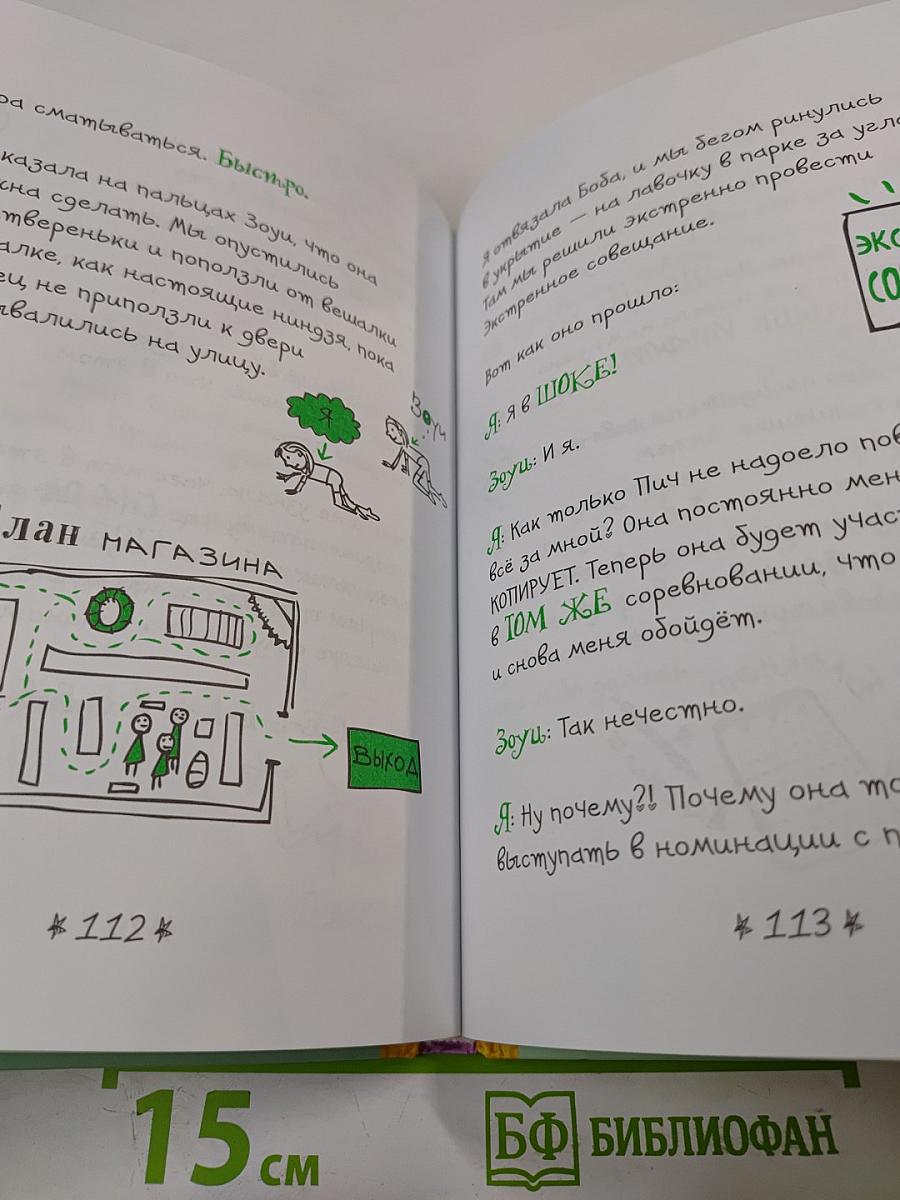 сматываться. Быстро.
на пальцах Зоуи, что она
сделать. Мы опустились
и поползли от вешалки
как настоящие ниндзя, пока
не приползли к двери
на улицу.
Я
Зоуи
МАГАЗИНА
ВЫХОД
* 112 *
Я отвязала Боба, и мы бегом ринулись
в укрытие — на лавочку в парке за
Там мы решили экстренно провести
экстренное совещание.
Вот как оно прошло:
Я: Я в ШОКЕ!
Зоуи: И я.
Я: Как только Пич не надоело
всё за мной? Она постоянно
КОПИРУЕТ. Теперь она будет
в ТОМ ЖЕ соревновании, что
и снова меня обойдёт.
Зоуи: Так нечестно.
Я: Ну почему?! Почему она
выступать в номинации с
* 113 *
15 см
БФ БИБЛИОФАН